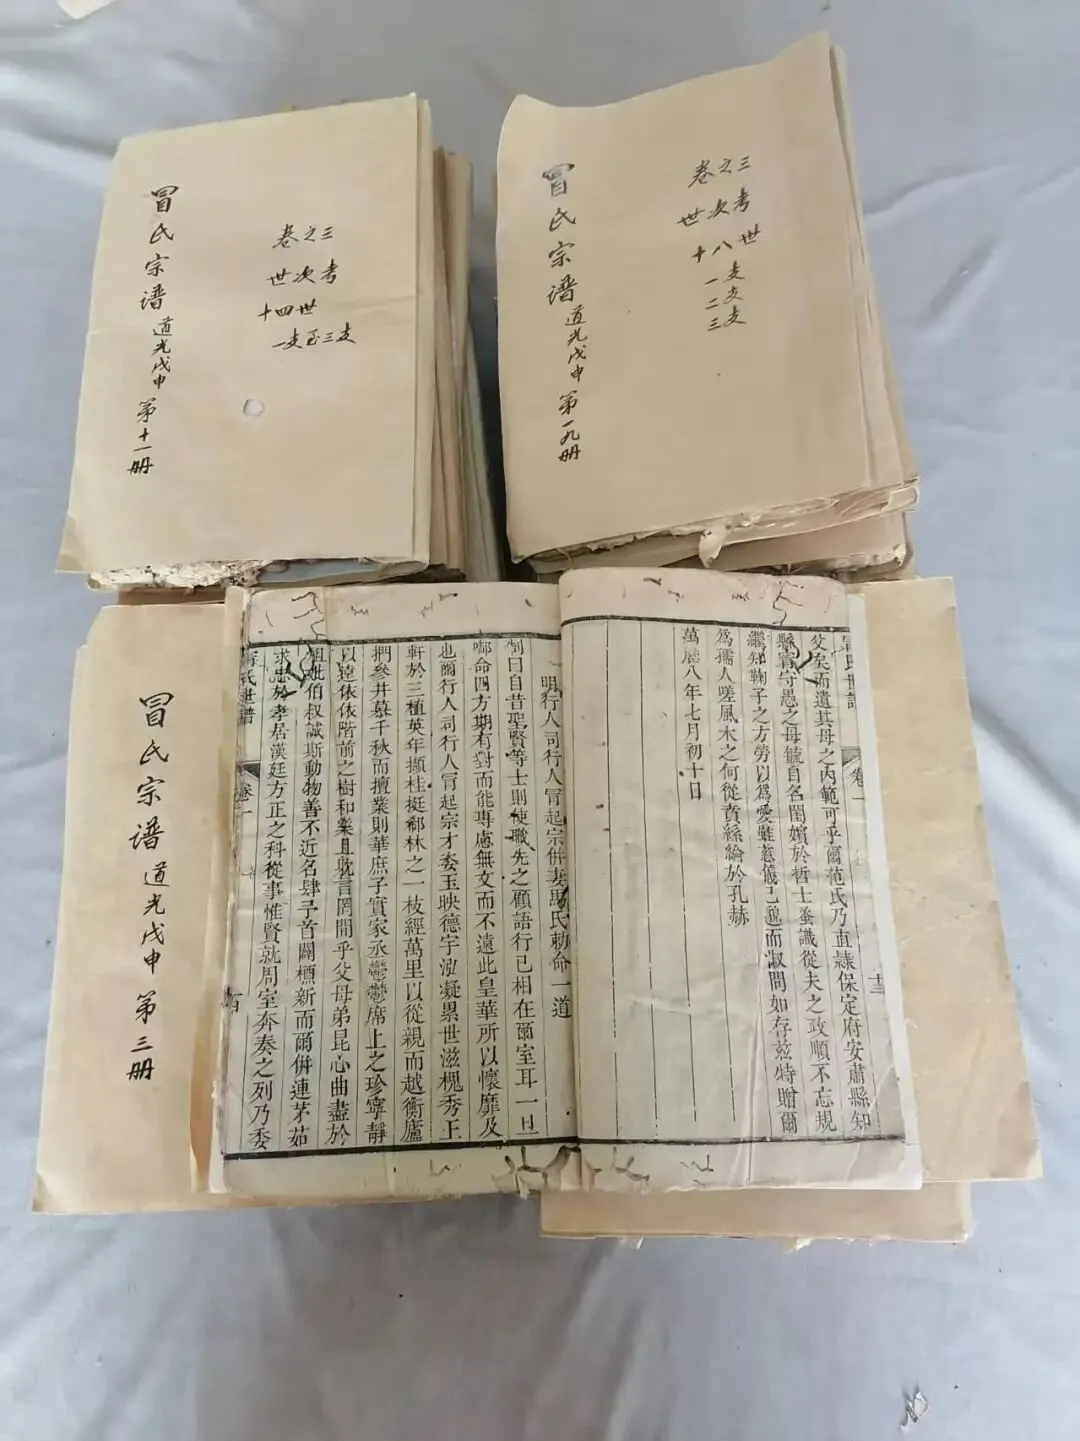 冒氏宗谱 道光戊申 第十一册
卷之三
世次考
十四世
一支至三支
冒氏宗谱 道光戊申 第一九册
卷之三
世次考
十八世
一支
二支
三支
冒氏宗谱 道光戊申 第三册
冒氏世譜 卷一 十三
父矣而遺其母之內範可乎爾范氏乃直隷保定府安肅縣知
縣冒守愚之母毓自名閨嬪於哲士蚤識從夫之政順不忘規
繼知鞠子之方勞以爲愛雖慈儀已邈而淑問如存玆特贈爾
爲孺人嗟風木之何從賁絲綸於孔赫
萬曆八年七月初十日
明行人司行人冒起宗併妻馬氏勅命一道
制曰自昔聖賢等士則使職先之顧語行已相在爾室耳一旦
啣命四方期有對而能專慮無文而不遠此皇華所以懷靡及
也爾行人司行人冒起宗才委玉映德宇泓凝累世滋槐秀王
軒於三植英年擷桂挺郗林之一枝經萬里以從親而越衡廬
捫參井慕千秋而擅業則華庶子實家丞鬱鬱席上之珍寧靜
以遠依依階前之樹和樂且耽言罔間乎父母弟昆心曲盡於
祖妣伯叔誠斯動物善不近名肆子首闢標新而爾併連茅茹
求忠於孝居漢廷方正之科從事惟賢就周室奔奏之列乃委
冒氏世譜 卷一